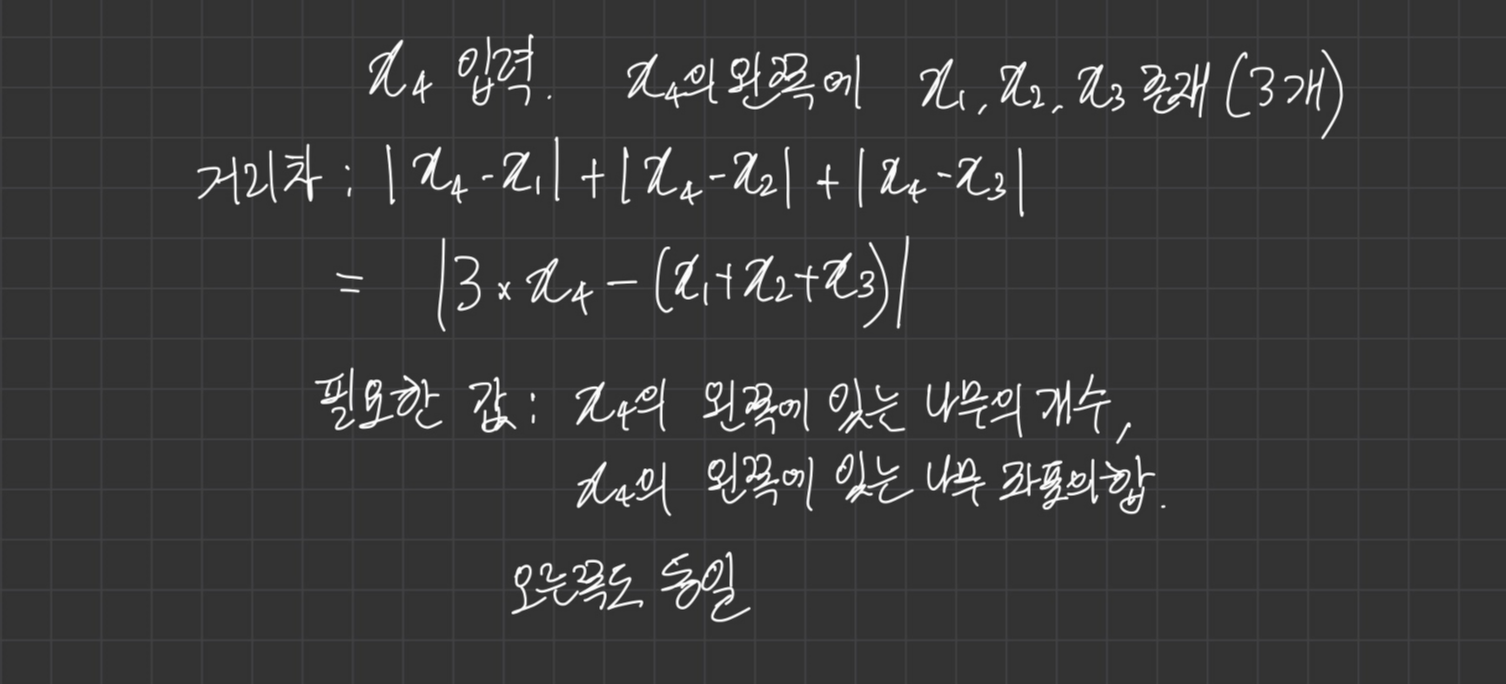 x₄ 입력. x₄의 왼쪽에 x₁, x₂, x₃ 존재 (3개)
거리차 : |x₄-x₁|+|x₄-x₂|+|x₄-x₃|
= |3×x₄-(x₁+x₂+x₃)|
필요한 값 : x₄의 왼쪽에 있는 나무의 개수,
x₄의 왼쪽에 있는 나무 좌표의 합.
오른쪽도 동일